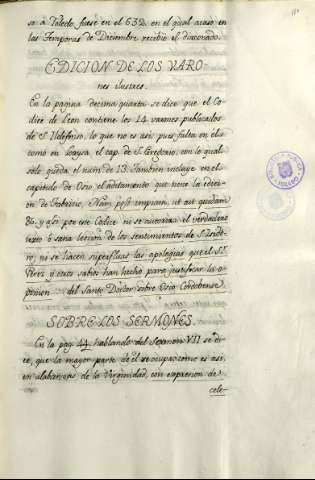 sa à Toledo, fuese en el 632. en el qual acaso en
las Temporas de Diciembre recibió el diaconado.
EDICION DE LOS VARO
nes ilustres.
En la pagina decima quarta se dice que el Co-
dice de Leon contiene los 14 varones publicados
de S. Ildefonso, lo que no es asi: pues falta en el
como en Loaysa el cap. de S. Gregorio, con lo qual
solo queda el num. de 13. Tambien incluye en el
capitulo de Osio el aditamento que tiene la edicion
de Fabricio, Nam post impium, ut ait quidam
&c. y asi por este Codice no se autoriza el verdadero
texto ò sana leccion de los sentimientos de S. Isido-
ro, ni se hacen superfluas las apologias que el Sr.
Perez ù otros sabios han hecho para justificar la o-
pinion del Santo Doctor sobre Osio Cordobense.
SOBRE LOS SERMONES.
En la pag. 44. hablando del Sermon VII se di-
ce, que la mayor parte de él se ocupa, como es asi,
en alabanzas de la Virginidad, con expresion de
cele-